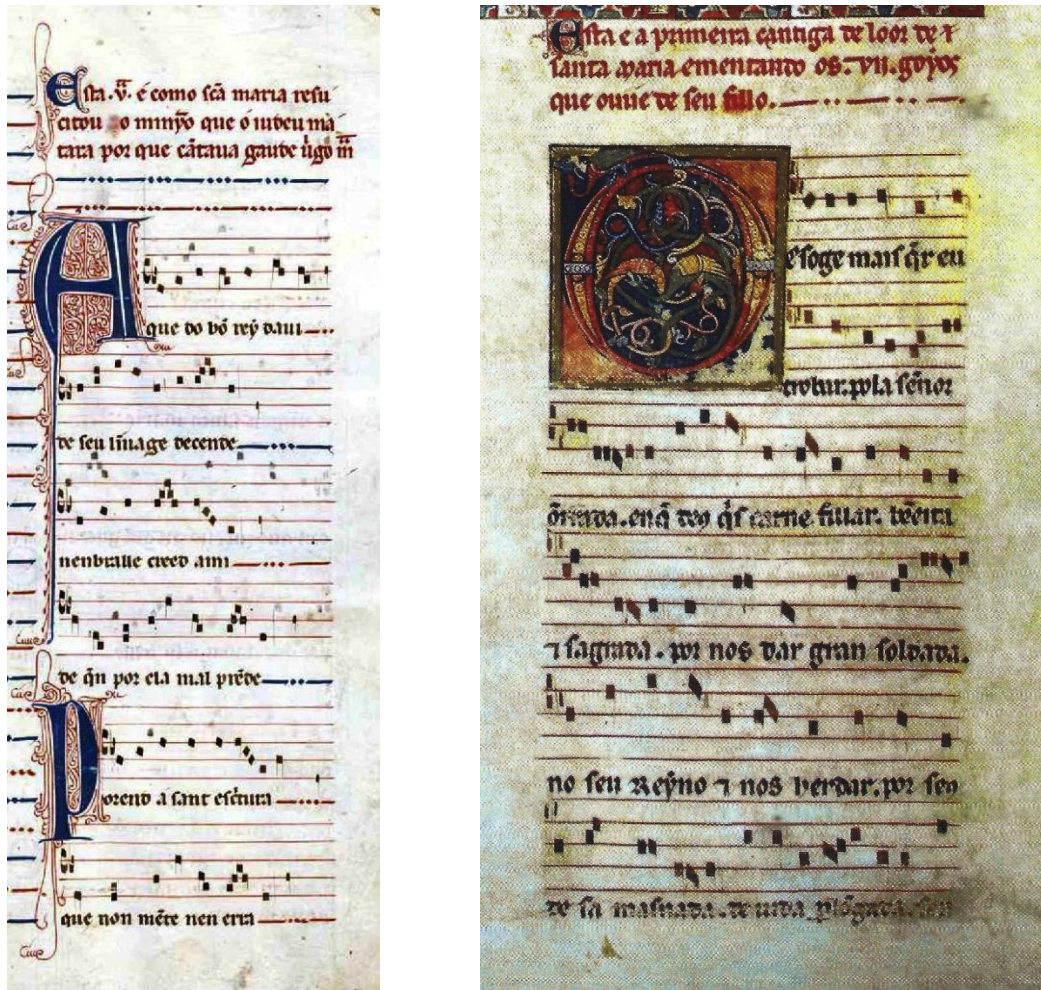 Esta .v̄. é como sc̃a maria resu
citou o minỹo que o iudeu ma
tara por que cãtaua gaude ũgo m̃
A que do bõ rey daui
de seu lĩnage decende
nenbralle creed ami
de qñ por ela mal prẽde
Porend a sant escr̃tura
que non mẽte nen erra
Esta e a primeira cantiga de loor de
santa maria ementando os .vii. goyos
que ouue de seu fillo.
Des oge mais q̃r eu
trobar. pola señor
õrrada. enq̃ deꝯ q̃s carne fillar. bẽeita
⁊ sagrada. por nos dar gran soldada.
no seu Reyno ⁊ nos herdar. por seꝯ
de sa masnada. de uida plõgada. sen